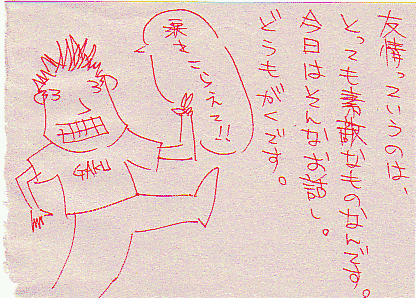 友情っていうのは、
とっても素敵なものなんです。
今日はそんなお話し。
どうもがくです。
暑さこらえて!!
GAKU